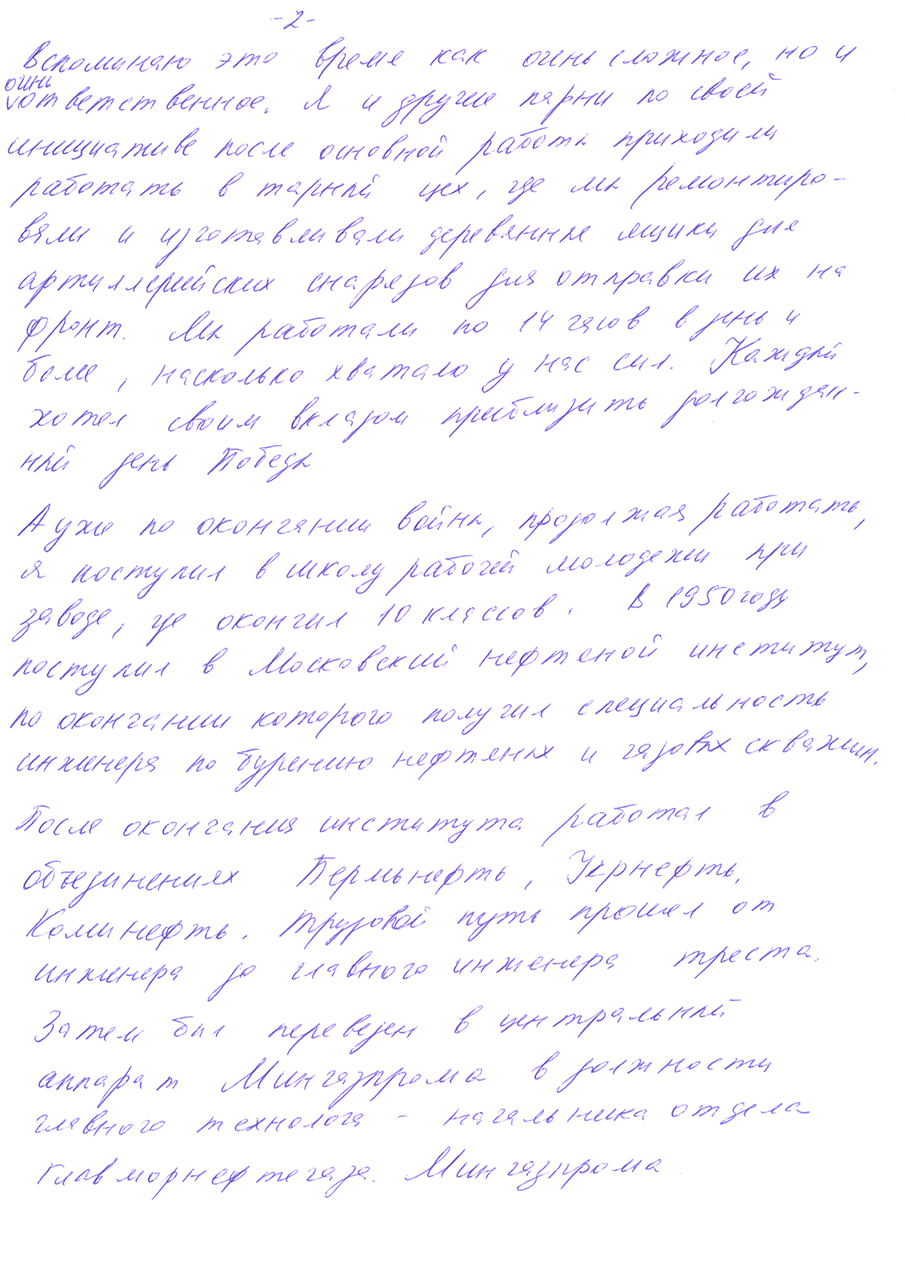 -2-
Вспоминаю это время как очень сложное, но и
очень
ответственное. Я и другие парни по своей
инициативе после основной работы приходили
работать в тарный цех, где мы ремонтиро-
вали и изготавливали деревянные ящики для
артиллерийских снарядов для отправки их на
фронт. Мы работали по 14 часов в день и
более, насколько хватало у нас сил. Каждый
хотел своим вкладом приблизить долгождан-
ный день Победы
А уже по окончании войны, продолжая работать,
я поступил в школу рабочей молодежи при
заводе, где окончил 10 классов. В 1950 году
поступил в Московский нефтеной институт,
по окончании которого получил специальность
инженера по бурению нефтяных и газовых скважин.
После окончания института работал в
объединениях Пермьнефть, Укрнефть,
Коминефть. Трудовой путь прошел от
инженера до главного инженера треста.
Затем был переведен в центральный
аппарат Мингазпрома в должности
главного технолога - начальника отдела
Главморнефтегаза. Мингазпрома